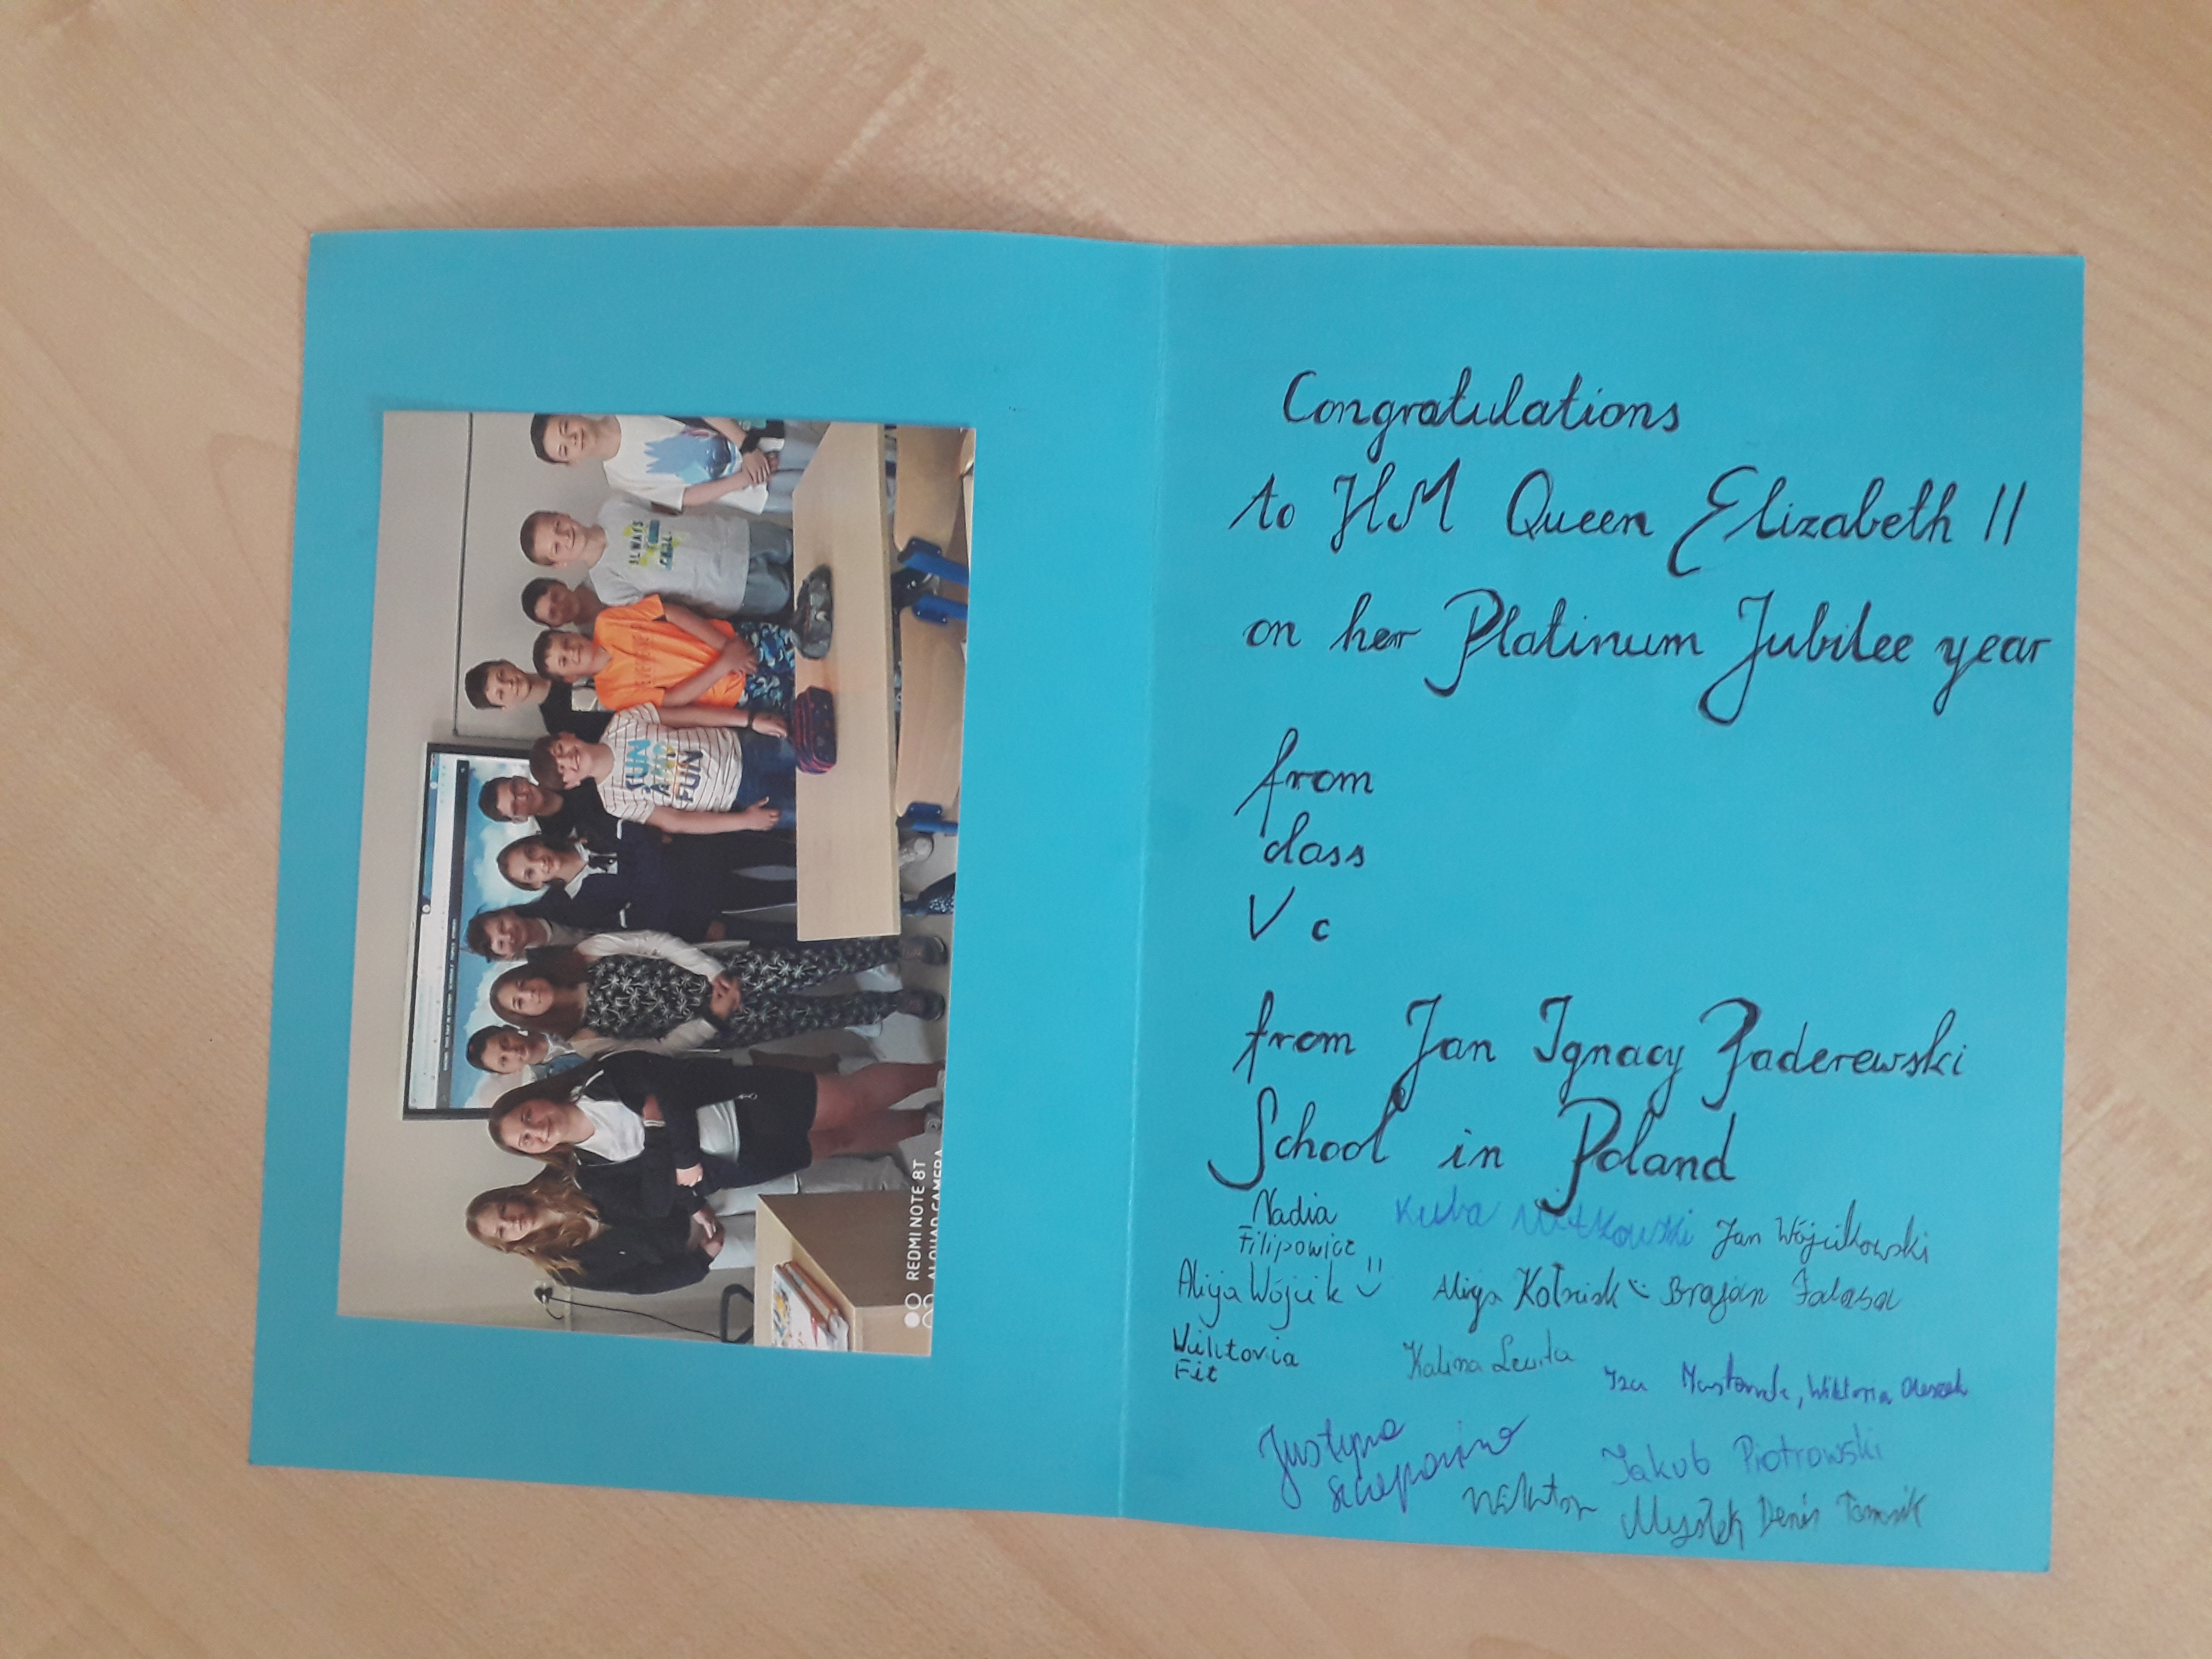 ALWAYS
FUN
AND
FUN
REDMI NOTE 8T
AI QUAD CAMERA
Congratulations
to HM Queen Elizabeth II
on her Platinum Jubilee year
from
class
V c
from Jan Ignacy Paderewski
School in Poland
Nadia Kuba Witkowski Jan Wójcikowski
Filipowicz
Alicja Wójcik Alicja Brajan
Wiktoria
Fit
Kalina
Iza Wiktoria
Justyna
Jakub Piotrowski
Wiktor Mysłek Denis